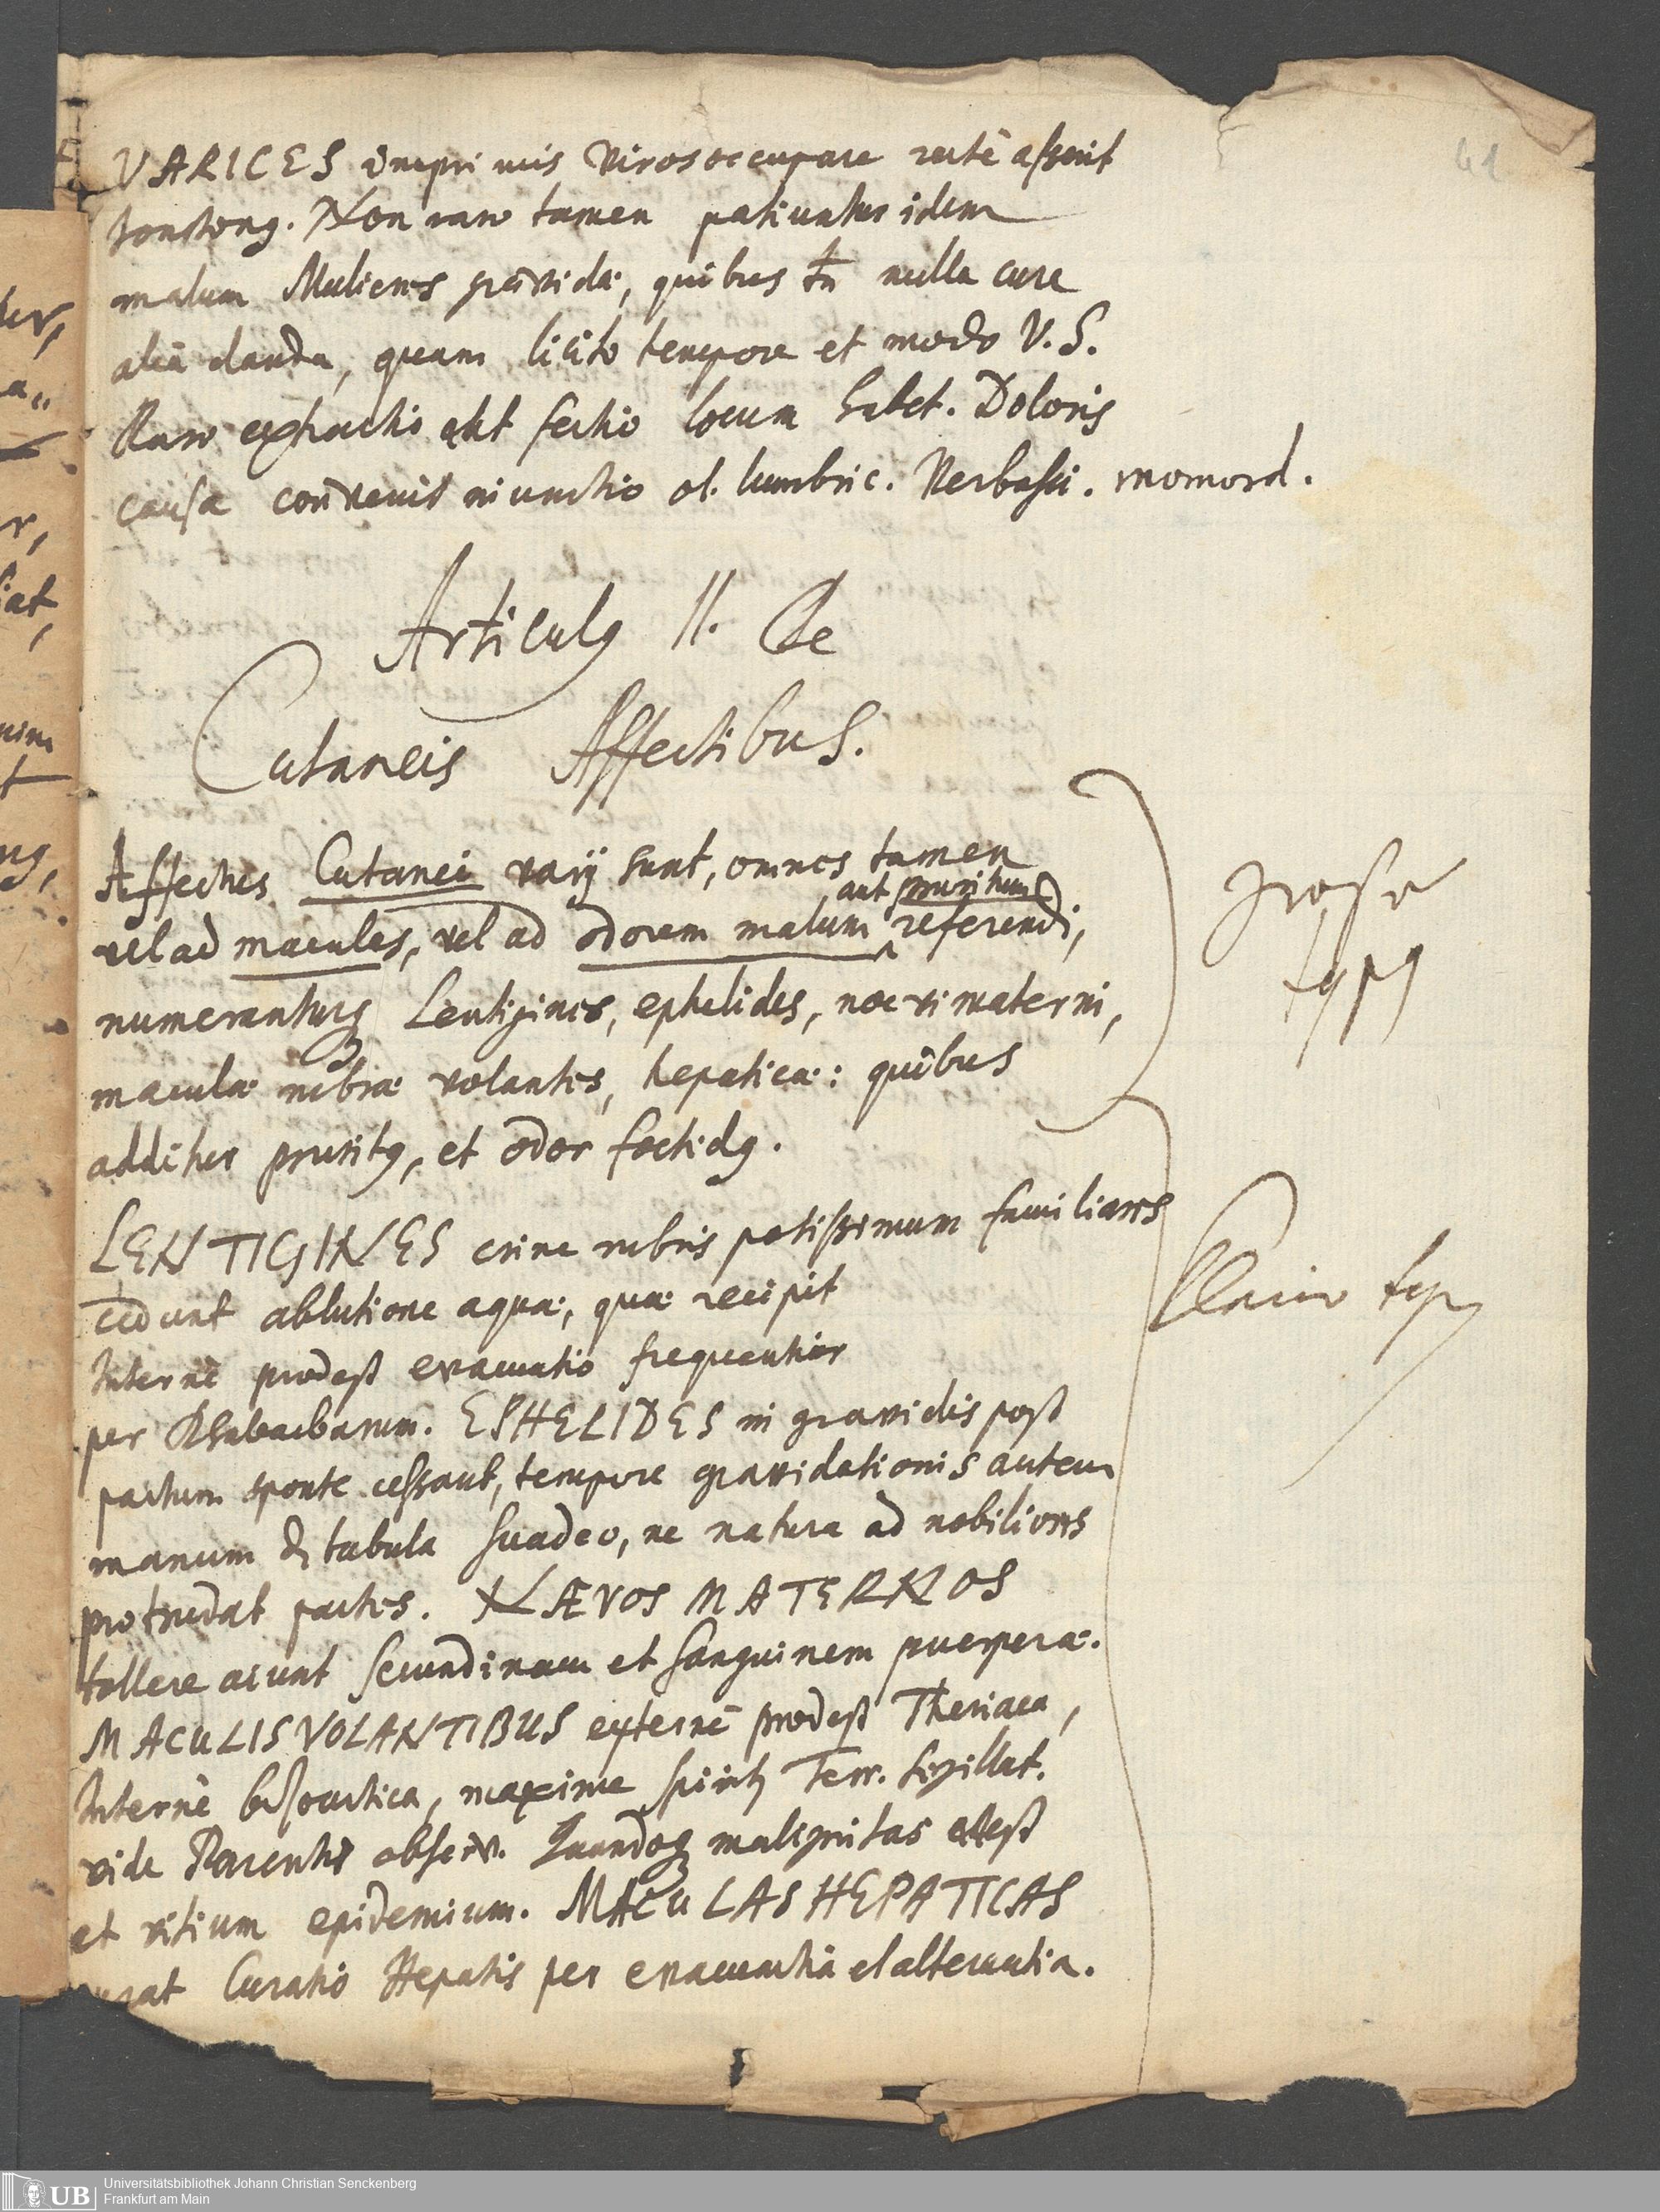 61
VARICES inprimis viros occupare rectè asserit
Jonstong. Non raro tamen patiuntur idem
malum Mulieres gravidæ, quibus tn nulla cura
alia danda, quam licito tempore et modo V.S.
Raro extractio aut sectio locum habet. Doloris
causa convenit inunctio ol. lumbric. Verbasci. momord.
Articulg II. De
Cutaneis Affectibus.
Affectus Cutanei varij sunt, omnes tamen
aut pruritum
vel ad maculas, vel ad odorem malum referendi,
numeranturq Lentigines, ephelides, nævi materni,
maculæ rubræ volantes, hepaticæ: quibus
additur pruritg, et odor foetidg.
LENTIGINES crine rubris potissimum familiares
cedunt ablutione aquæ, quæ recipit
Internè prodest evacuatio frequentior
per Rhabarbarum. EPHELIDES in gravidis post
partum sponte cessant, tempore gravidationis autem
manum de tabula suadeo, ne natura ad nobiliores
protrudat partes. NÆVOS MATERNOS
tollere aiunt secundinam et sanguinem puerperæ.
MACULIS VOLANTIBUS externè prodest Theriaca,
Internè bezoartica, maxime spiritg Terr. sigillat.
vide Parentis observ. Quandoq malignitas adest
et vitium epidemium. MACULAS HEPATICAS
curat Curatio Hepatis per evacuantia et alterantia.
grosse
typg